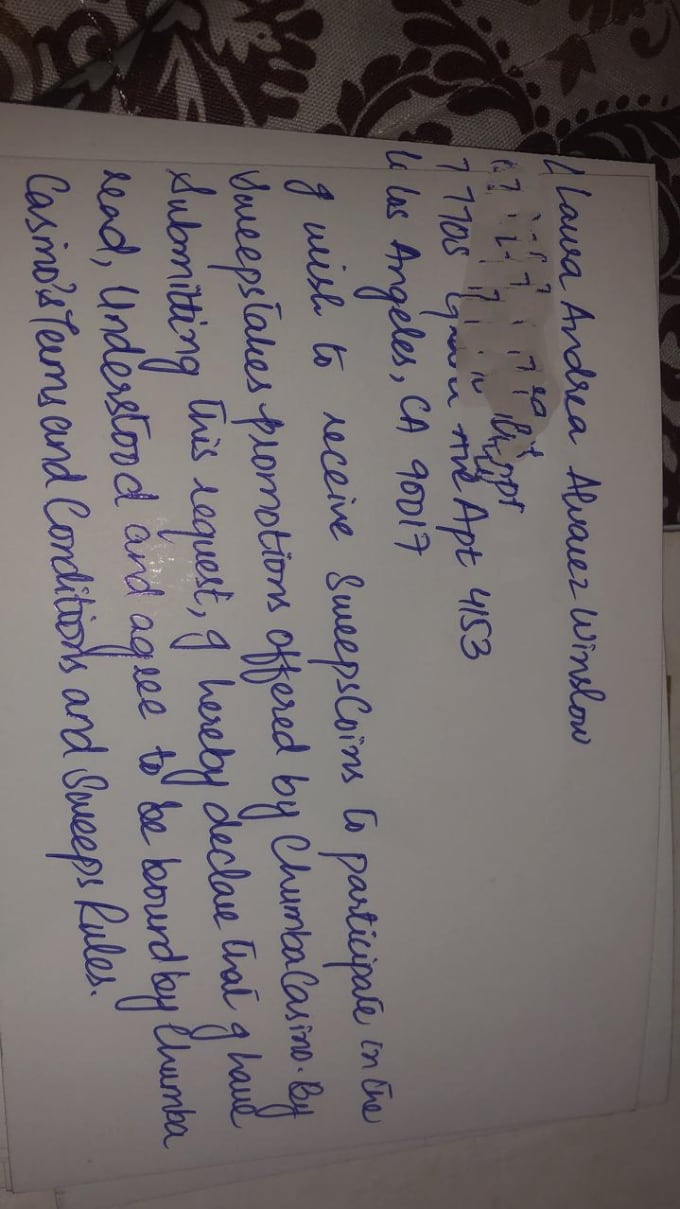 Laura Andrea Alvarez Winslow
7705 Ave Apt 4153
Los Angeles, CA 90017
I wish to receive SweepsCoins to participate in the
Sweepstakes promotions offered by Chumba Casino. By
Submitting this request, I hereby declare that I have
read, Understood and agree to be bound by Chumba
Casino's Terms and Conditions and Sweeps Rules.